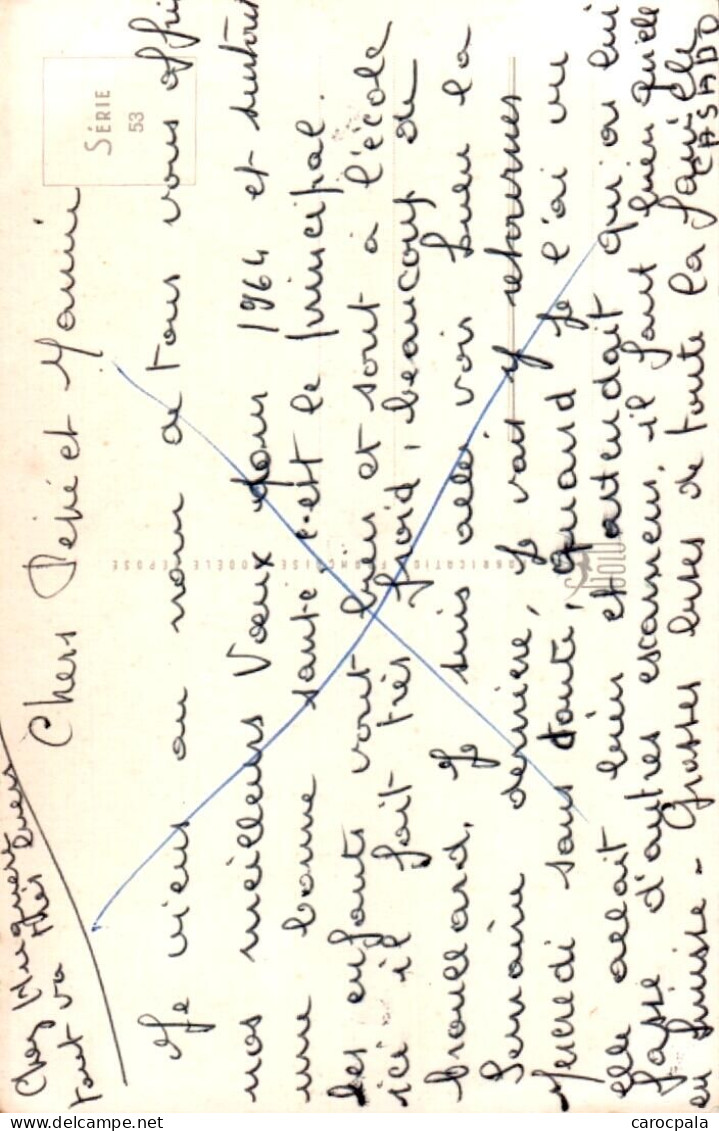 Chers Pépé et Mamie
Je viens au nom de tous vous offrir
nos meilleurs Vœux pour 1964 et surtout
une bonne santé c'est le principal.
Les enfants vont bien et sont à l'école
ici il fait très froid, beaucoup de
brouillard. Je suis allée voir Lulu la
Semaine dernière, je vais y retourner
Mercredi sans doute, quand je l'ai vu
elle allait bien et attendait qu'on lui
fasse d'autres examens, il faut bien qu'elle
en finisse - Grosses bises de toute la famille
CASADO
Chez Huguette
tout va très bien
SÉRIE
53
FABRICATION FRANÇAISE MODÈLE DÉPOSÉ
carocpala